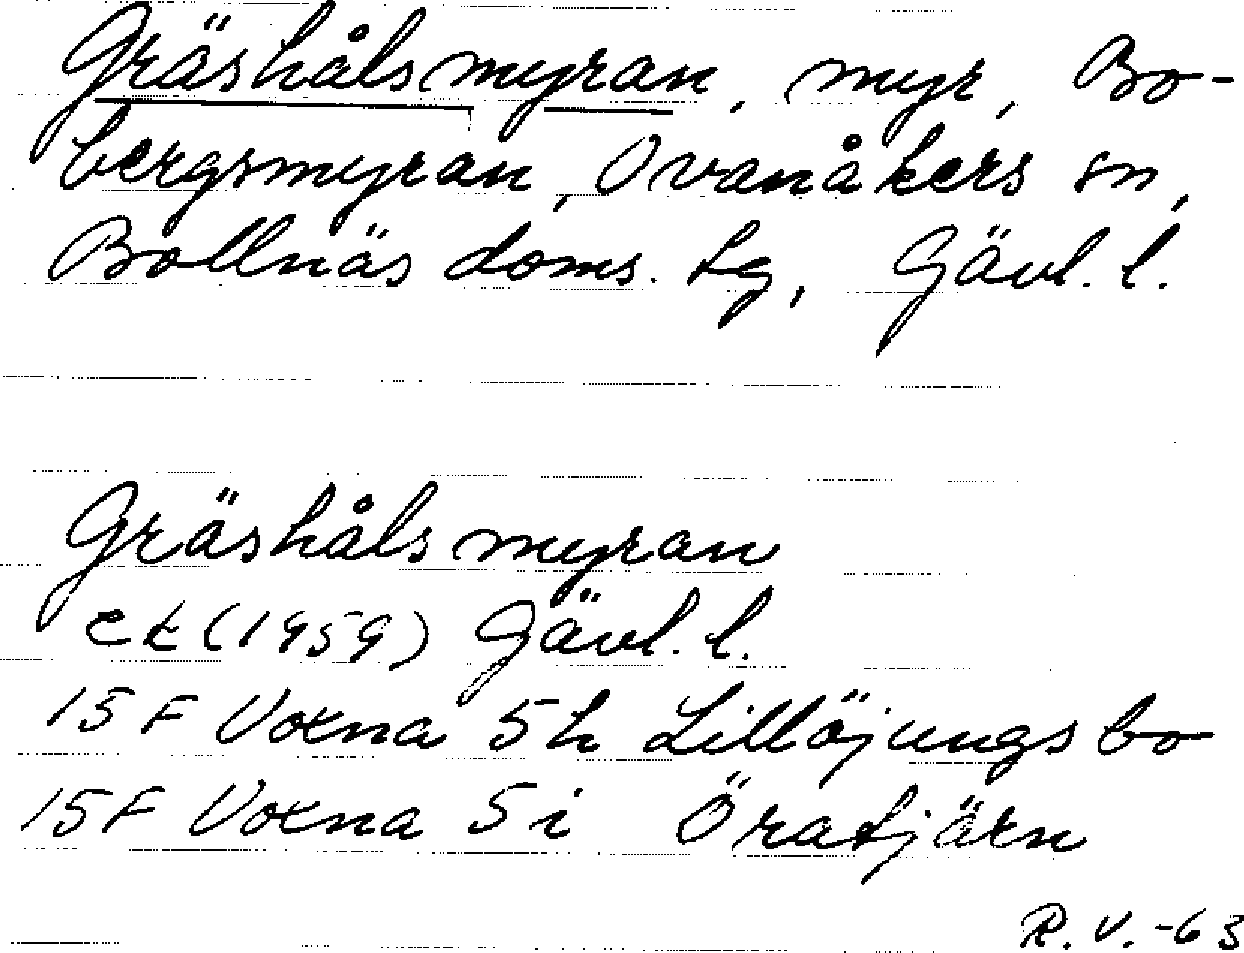 Gräshålsmyran, myr, Bo-
bergsmyran, Ovanåkers sn,
Bollnäs doms. tg, Gävl. l.
Gräshålsmyran
ek (1959) Gävl. l.
15 F Voxna 5h Lillöjungsbo
15 F Voxna 5i Öratjärn
R. V. -63